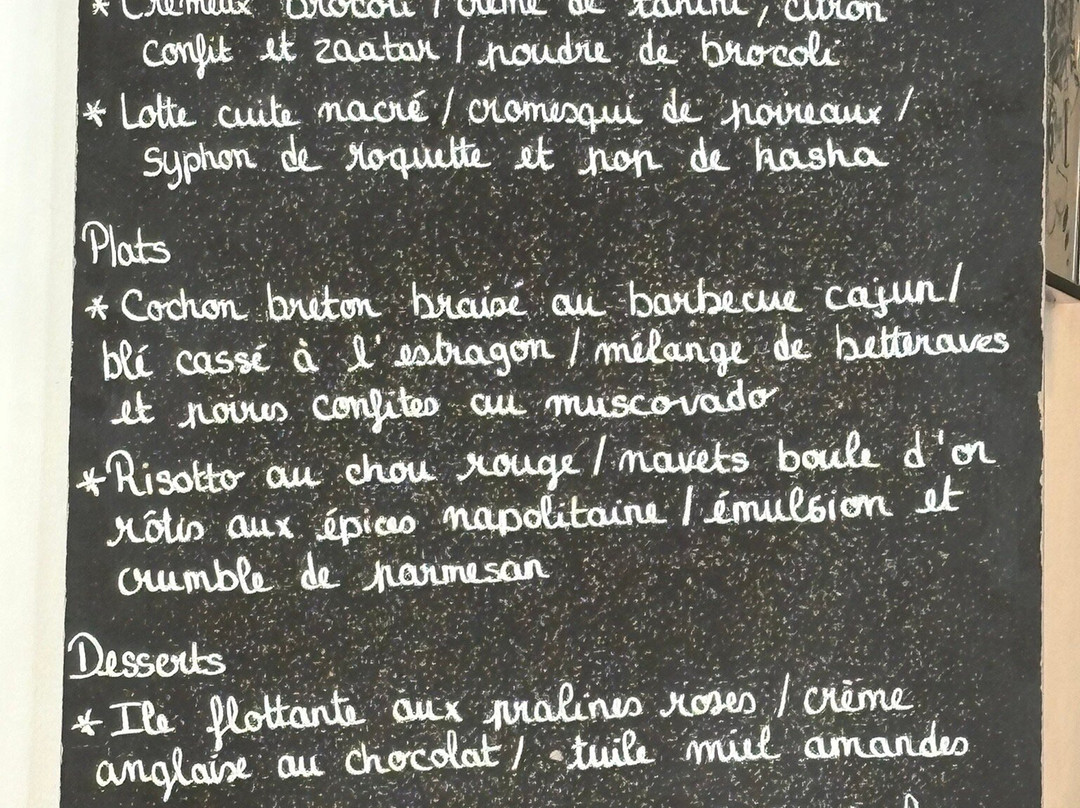 * Crémeux brocoli / crème de tahini, citron
confit et zaatar / poudre de brocoli
* Lotte cuite nacré / cromesqui de poireaux /
syphon de roquette et pop de kasha
Plats
* Cochon breton braisé au barbecue cajun /
blé cassé à l'estragon / mélange de betteraves
et poires confites au muscovado
* Risotto au chou rouge / navets boule d'or
rôtis aux épices napolitaine / émulsion et
crumble de parmesan
Desserts
* Ile flottante aux pralines roses / crème
anglaise au chocolat / tuile miel amandes